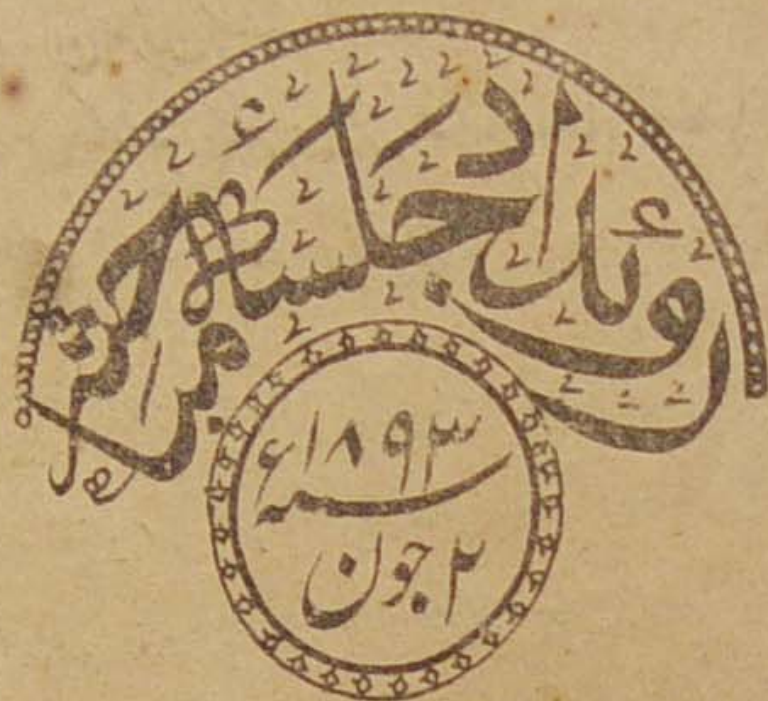 روئداد جلسۂ مباحثہ
سنہ ۱۸۹۳ء
۲ جون